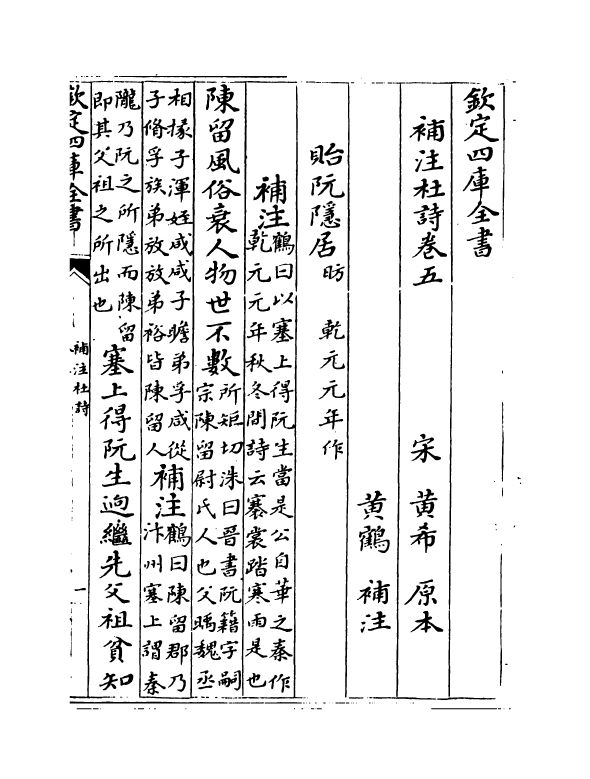 欽定四庫全書
補注杜詩卷五
宋 黄希 原本
黄鶴 補注
貽阮隱居昉 乾元元年作
補注鶴曰以塞上得阮生當是公自華之秦作
乾元元年秋冬間詩云褰裳踏寒雨是也
陳留風俗衰人物世不數所矩切洙曰晉書阮籍字嗣
宗陳留尉氏人也父瑀魏丞
相掾子渾姪咸咸子瞻弟孚咸從
子脩孚族弟放放弟裕皆陳留人補注鶴曰陳留郡乃
汴州塞上謂秦
隴乃阮之所隱而陳留
即其父祖之所出也塞上得阮生迥繼先父祖貧知
欽定四庫全書
補注杜詩
一